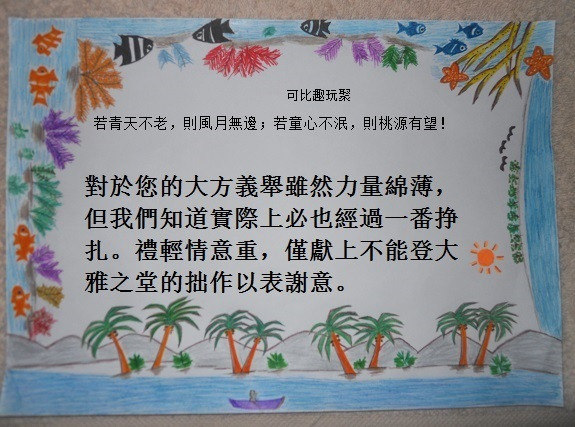 可比趣玩聚
若青天不老，則風月無邊；若童心不泯，則桃源有望！
對於您的大方義舉雖然力量綿薄，
但我們知道實際上必也經過一番掙
扎。禮輕情意重，僅獻上不能登大
雅之堂的拙作以表謝意。